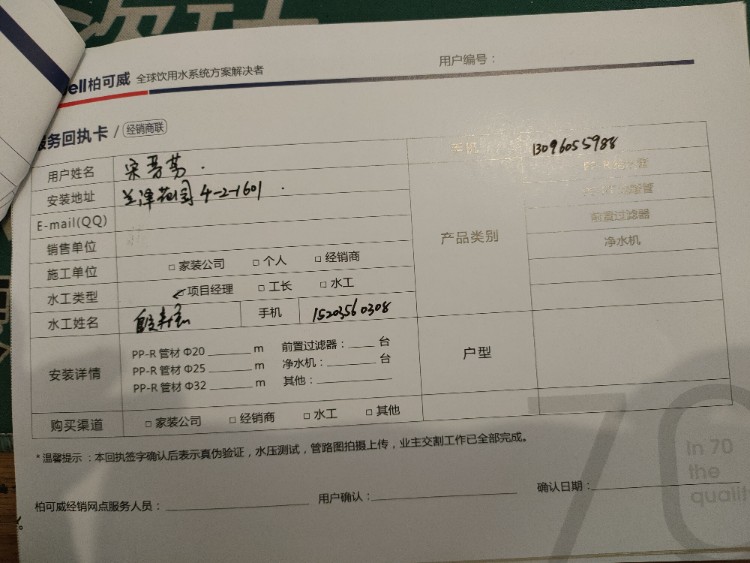 ell柏可威 全球饮用水系统方案解决者 用户编号：
服务回执卡 / 经销商联
用户姓名 宋 13096055988
安装地址 兰泽花园 4-2-1601
E-mail(QQ)
销售单位 产品类别 前置过滤器
净水机
施工单位 □ 家装公司 □ 个人 □ 经销商
水工类型 项目经理 □ 工长 □ 水工
水工姓名 手机 15203560308
安装详情 PP-R 管材 Φ20 ______ m 前置过滤器：____ 台 户型
PP-R 管材 Φ25 ______ m 净水机：______ 台
PP-R 管材 Φ32 ______ m 其他：______
购买渠道 □ 家装公司 □ 经销商 □ 水工 □ 其他
*温馨提示：本回执签字确认后表示真伪验证，水压测试，管路图拍摄上传，业主交割工作已全部完成。
柏可威经销网点服务人员：______ 用户确认：______ 确认日期：______
70
In 70
the
qualit